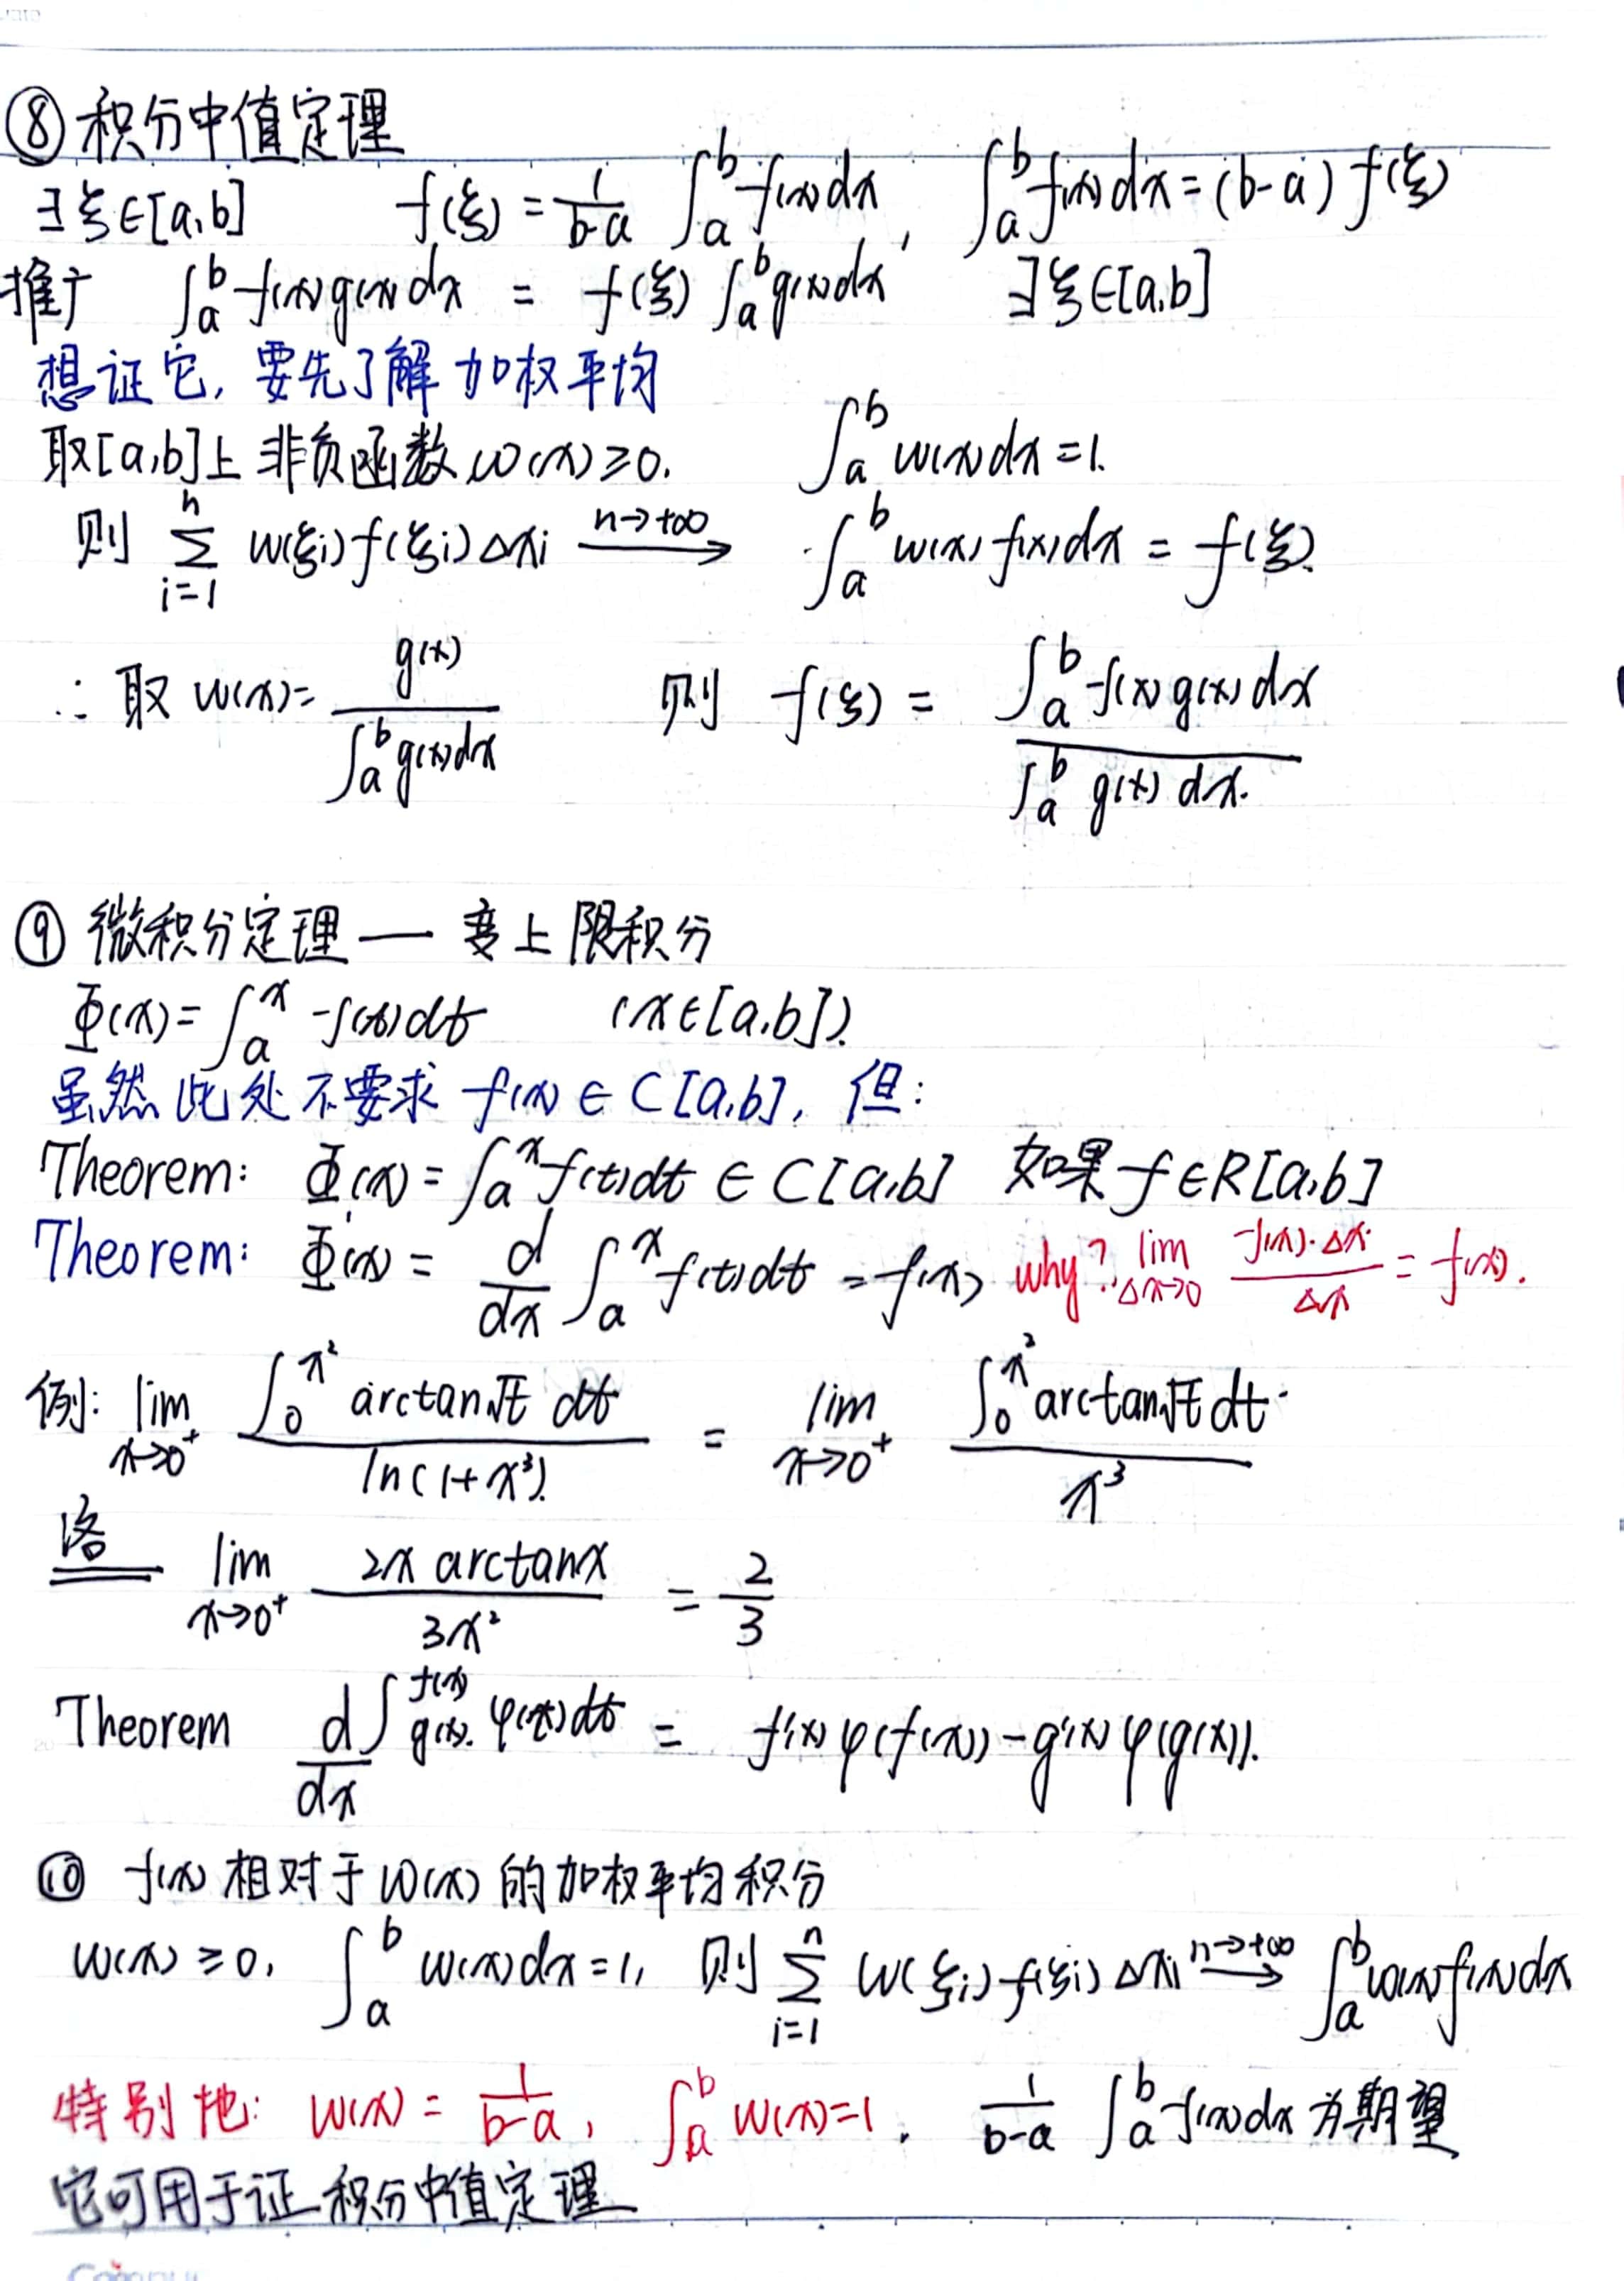 ⑧ 积分中值定理
∃ξ∈[a,b] f(ξ) = \frac{1}{b-a} ∫_a^b f(x)dx, ∫_a^b f(x)dx = (b-a) f(ξ)
推广 ∫_a^b f(x)g(x)dx = f(ξ) ∫_a^b g(x)dx ∃ξ∈[a,b]
想证它, 要先了解加权平均
取[a,b]上非负函数 w(x)≥0. ∫_a^b w(x)dx = 1.
则 \sum_{i=1}^n w(ξi)f(ξi)Δxi \xrightarrow{n→+∞} ∫_a^b w(x)f(x)dx = f(ξ).
∴ 取 w(x) = \frac{g(x)}{∫_a^b g(x)dx} 则 f(ξ) = \frac{∫_a^b f(x)g(x)dx}{∫_a^b g(x)dx.}
⑨ 微积分定理 — 变上限积分
Φ(x) = ∫_a^x f(t)dt (x∈[a,b]).
虽然此处不要求 f(x)∈C[a,b], 但:
Theorem: Φ(x) = ∫_a^x f(t)dt ∈ C[a,b] 如果 f∈R[a,b]
Theorem: Φ'(x) = \frac{d}{dx} ∫_a^x f(t)dt = f(x) why? \lim_{Δx→0} \frac{f(x)·Δx}{Δx} = f(x).
例: \lim_{x→0^+} \frac{∫_0^{x²} arctan√t dt}{ln(1+x³).} = \lim_{x→0^+} \frac{∫_0^{x²} arctan√t dt}{x³}
\overset{洛}{=} \lim_{x→0^+} \frac{2x arctanx}{3x²} = \frac{2}{3}
Theorem \frac{d}{dx} ∫_{g(x)}^{f(x)} φ(t)dt = f'(x)φ(f(x)) - g'(x)φ(g(x)).
⑩ f(x) 相对于 w(x) 的加权平均积分
w(x)≥0, ∫_a^b w(x)dx = 1, 则 \sum_{i=1}^n w(ξi)f(ξi)Δxi \xrightarrow{n→+∞} ∫_a^b w(x)f(x)dx
特别地: w(x) = \frac{1}{b-a}, ∫_a^b w(x) = 1. \frac{1}{b-a} ∫_a^b f(x)dx 为期望
它可用于证积分中值定理